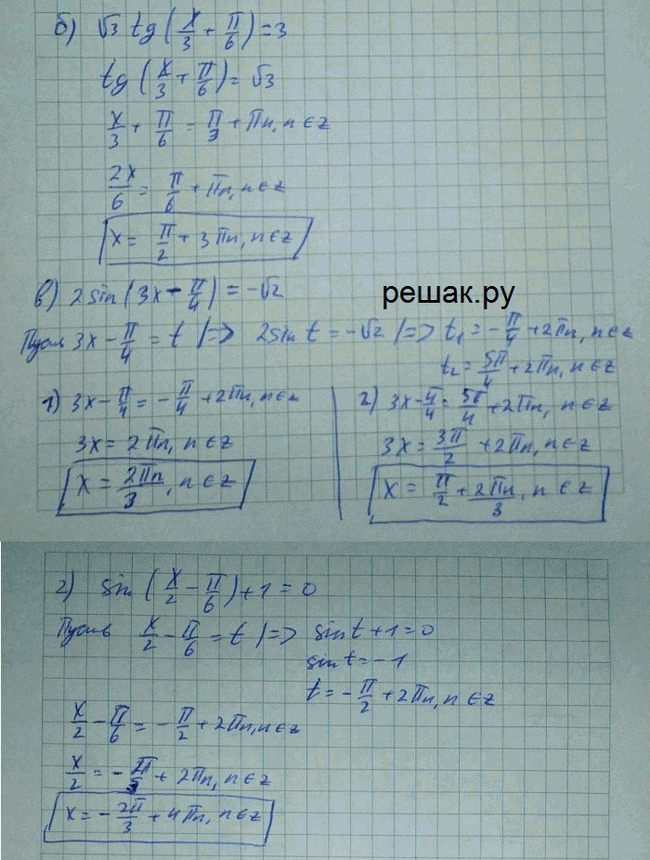 б) √3 tg (x/3 + π/6) = 3
tg (x/3 + π/6) = √3
x/3 + π/6 = π/3 + πn, n ∈ z
2x/6 = π/6 + πn, n ∈ z
x = π/2 + 3πn, n ∈ z
в) 2 sin (3x - π/4) = -√2
решак.ру
Пусть 3x - π/4 = t |=> 2 sin t = -√2 |=> t₁ = -π/4 + 2πn, n ∈ z
t₂ = 5π/4 + 2πn, n ∈ z
1) 3x - π/4 = -π/4 + 2πn, n ∈ z
3x = 2πn, n ∈ z
x = 2πn/3, n ∈ z
2) 3x - π/4 = 5π/4 + 2πn, n ∈ z
3x = 3π/2 + 2πn, n ∈ z
x = π/2 + 2πn/3, n ∈ z
г) sin (x/2 - π/6) + 1 = 0
Пусть x/2 - π/6 = t |=> sin t + 1 = 0
sin t = -1
t = -π/2 + 2πn, n ∈ z
x/2 - π/6 = -π/2 + 2πn, n ∈ z
x/2 = -π/3 + 2πn, n ∈ z
x = -2π/3 + 4πn, n ∈ z